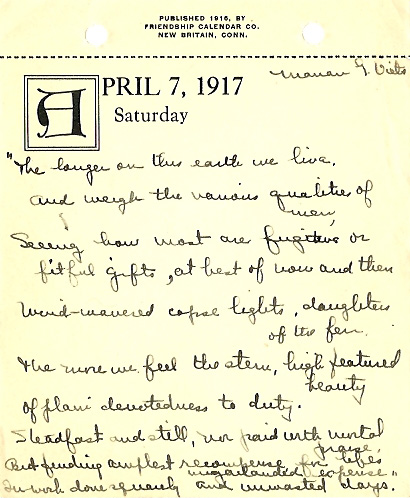 PUBLISHED 1916, BY
FRIENDSHIP CALENDAR CO.
NEW BRITAIN, CONN.
Marian G. Viets
APRIL 7, 1917
Saturday
"The longer on this earth we live,
and weigh the various qualities of
men,
Seeing how most are fugitive or
fitful gifts, at best of now and then
Wind-wavered corpse lights, daughters
of the fen.
The more we feel the stern, high featured
beauty
Of plain devotedness to duty.
Steadfast and still, nor paid with mortal
praise,
But finding amplest recompense for life's
ungarlanded expense"
In work done squarely and unwasted days.